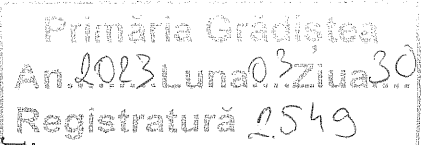 Primăria Grădiștea
An.2023.Luna03Ziua30
Registratură 2549